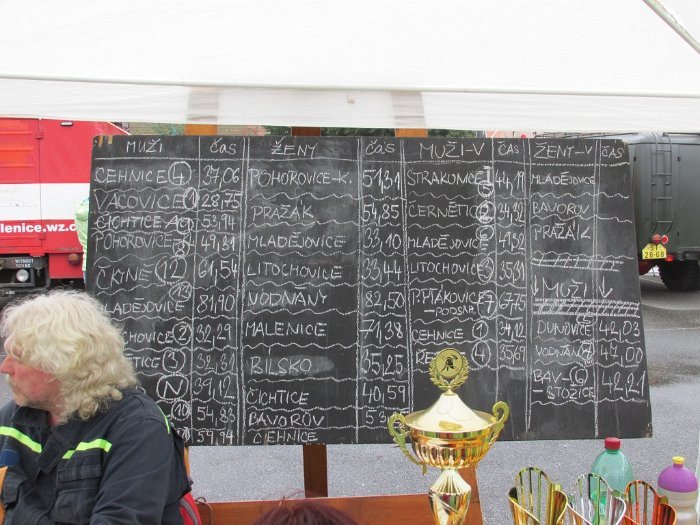 MUŽI ČAS ŽENY ČAS MUŽI-V ČAS ŽENY-V ČAS
CEHNICE 4 37,06 POHOROVICE-K. 51,31 STRAKONICE 44,19 MLADĚJOVICE
VACOVICE 1 28,75 PRAŽÁK 54,85 ČERNĚTICE 2 BAVOROV
ČICHTICE 53,94 MLADĚJOVICE 33,10 MLADĚJOVICE PRAŽÁK
POHOROVICE 49,81
ČKYNĚ 12 61,54 LITOCHOVICE 33,44 LITOCHOVICE 3 35,31
MLADĚJOVICE 13 81,90 VODŇANY 82,50 67,75 ↓MUŽI↓
-PODSRP.
2 32,29 MALENICE 71,38 CEHNICE 1 34,12 DUNOVICE 42,03
3 BÍLSKO 35,25 4 35,69 VODŇANY 47,00
N 39,12 ČICHTICE 40,59 BAV- 6 42,21
-STOŽICE
10 BAVOROV
57,94 CEHNICE
lenice.wz.cz
ST
28-68